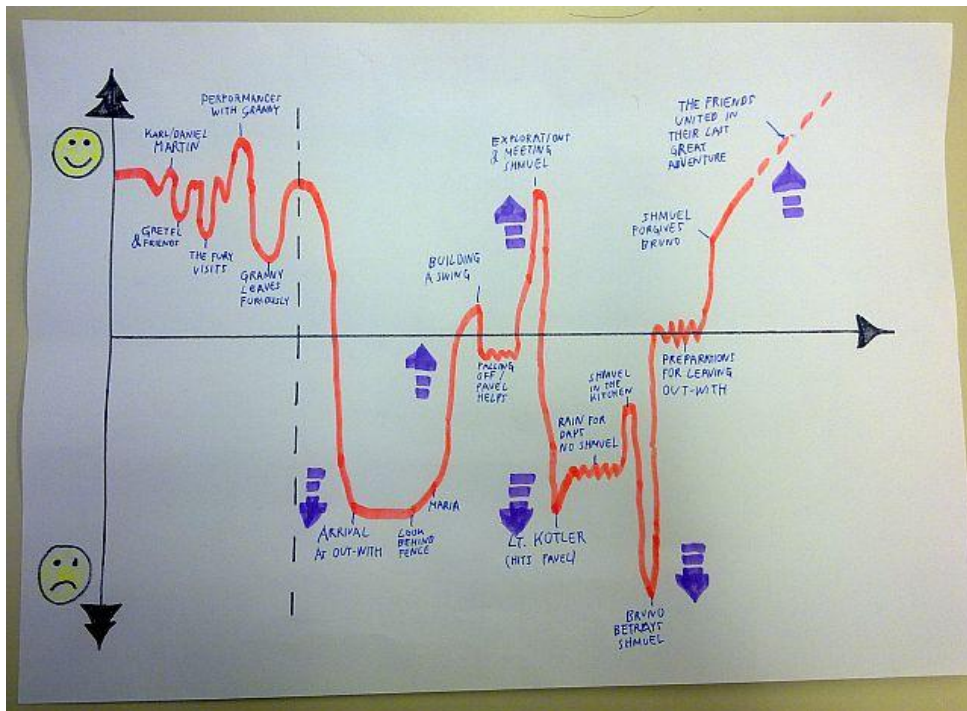 PERFORMANCES
WITH GRANNY
KARL/DANIEL
MARTIN
GRETEL
& FRIENDS
THE FURY
VISITS
GRANNY
LEAVES
FURIOUSLY
ARRIVAL
AT OUT-WITH
LOOK
BEHIND
FENCE
MARIA
BUILDING
A SWING
FALLING
OFF/
PAVEL
HELPS
EXPLORATIONS
& MEETING
SHMUEL
LT. KOTLER
(HITS PAVEL)
RAIN FOR
DAYS
NO SHMUEL
SHMUEL
IN THE
KITCHEN
BRUNO
BETRAYS
SHMUEL
PREPARATIONS
FOR LEAVING
OUT-WITH
SHMUEL
FORGIVES
BRUNO
THE FRIENDS
UNITED IN
THEIR LAST
GREAT
ADVENTURE